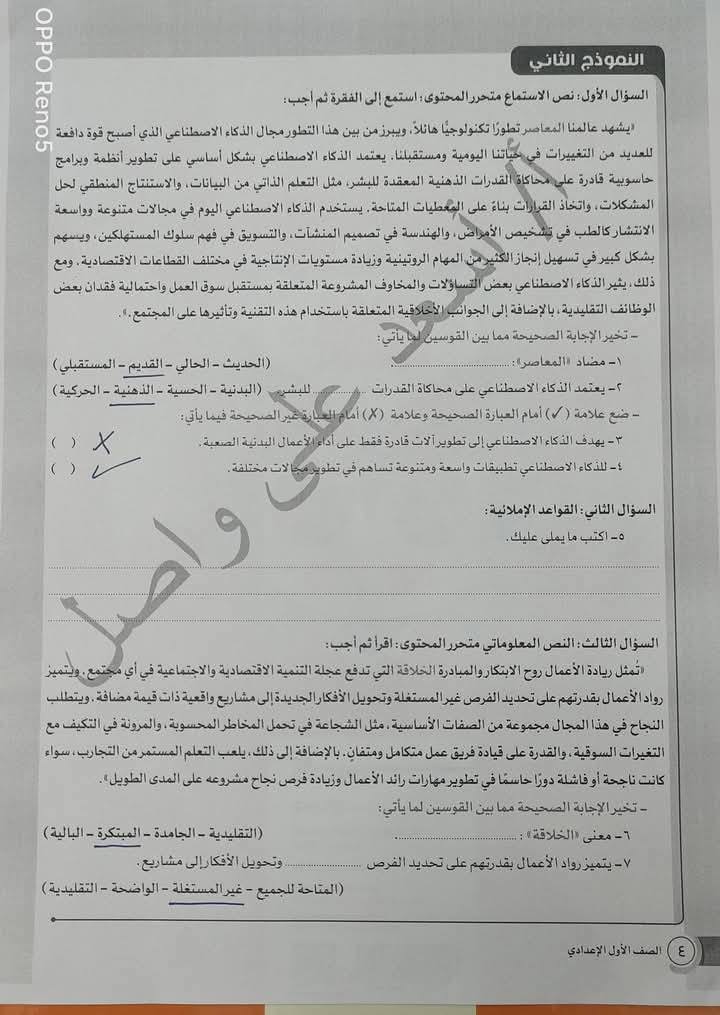 OPPO Reno5
النموذج الثاني
السؤال الأول: نص الاستماع متحرر المحتوى: استمع إلى الفقرة ثم أجب:
«يشهد عالمنا المعاصر تطورًا تكنولوجيًّا هائلاً، ويبرز من بين هذا التطور مجال الذكاء الاصطناعي الذي أصبح قوة دافعة
للعديد من التغييرات في حياتنا اليومية ومستقبلنا. يعتمد الذكاء الاصطناعي بشكل أساسي على تطوير أنظمة وبرامج
حاسوبية قادرة على محاكاة القدرات الذهنية المعقدة للبشر، مثل التعلم الذاتي من البيانات، والاستنتاج المنطقي لحل
المشكلات، واتخاذ القرارات بناءً على المعطيات المتاحة. يستخدم الذكاء الاصطناعي اليوم في مجالات متنوعة وواسعة
الانتشار كالطب في تشخيص الأمراض، والهندسة في تصميم المنشآت، والتسويق في فهم سلوك المستهلكين، ويسهم
بشكل كبير في تسهيل إنجاز الكثير من المهام الروتينية وزيادة مستويات الإنتاجية في مختلف القطاعات الاقتصادية. ومع
ذلك، يثير الذكاء الاصطناعي بعض التساؤلات والمخاوف المشروعة المتعلقة بمستقبل سوق العمل واحتمالية فقدان بعض
الوظائف التقليدية، بالإضافة إلى الجوانب الأخلاقية المتعلقة باستخدام هذه التقنية وتأثيرها على المجتمع.».
- تخير الإجابة الصحيحة مما بين القوسين لما يأتي:
١- مضاد «المعاصر»: .................. (الحديث - الحالي - القديم - المستقبلي)
٢- يعتمد الذكاء الاصطناعي على محاكاة القدرات .................. للبشر. (البدنية - الحسية - الذهنية - الحركية)
- ضع علامة (✓) أمام العبارة الصحيحة وعلامة (✗) أمام العبارة غير الصحيحة فيما يأتي:
٣- يهدف الذكاء الاصطناعي إلى تطوير آلات قادرة فقط على أداء الأعمال البدنية الصعبة. ✗ ( )
٤- للذكاء الاصطناعي تطبيقات واسعة ومتنوعة تساهم في تطوير مجالات مختلفة. ✓ ( )
السؤال الثاني: القواعد الإملائية:
٥- اكتب ما يملى عليك.
السؤال الثالث: النص المعلوماتي متحرر المحتوى: اقرأ ثم أجب:
«تُمثل ريادة الأعمال روح الابتكار والمبادرة الخلاقة التي تدفع عجلة التنمية الاقتصادية والاجتماعية في أي مجتمع. ويتميز
رواد الأعمال بقدرتهم على تحديد الفرص غير المستغلة وتحويل الأفكار الجديدة إلى مشاريع واقعية ذات قيمة مضافة. ويتطلب
النجاح في هذا المجال مجموعة من الصفات الأساسية، مثل الشجاعة في تحمل المخاطر المحسوبة، والمرونة في التكيف مع
التغيرات السوقية، والقدرة على قيادة فريق عمل متكامل ومتفانٍ. بالإضافة إلى ذلك، يلعب التعلم المستمر من التجارب، سواء
كانت ناجحة أو فاشلة دورًا حاسمًا في تطوير مهارات رائد الأعمال وزيادة فرص نجاح مشروعه على المدى الطويل».
- تخير الإجابة الصحيحة مما بين القوسين لما يأتي:
٦- معنى «الخلاقة»: .................. (التقليدية - الجامدة - المبتكرة - البالية)
٧- يتميز رواد الأعمال بقدرتهم على تحديد الفرص .................. وتحويل الأفكار إلى مشاريع.
(المتاحة للجميع - غير المستغلة - الواضحة - التقليدية)
٤ الصف الأول الإعدادي
أ/ أسعد على واصل